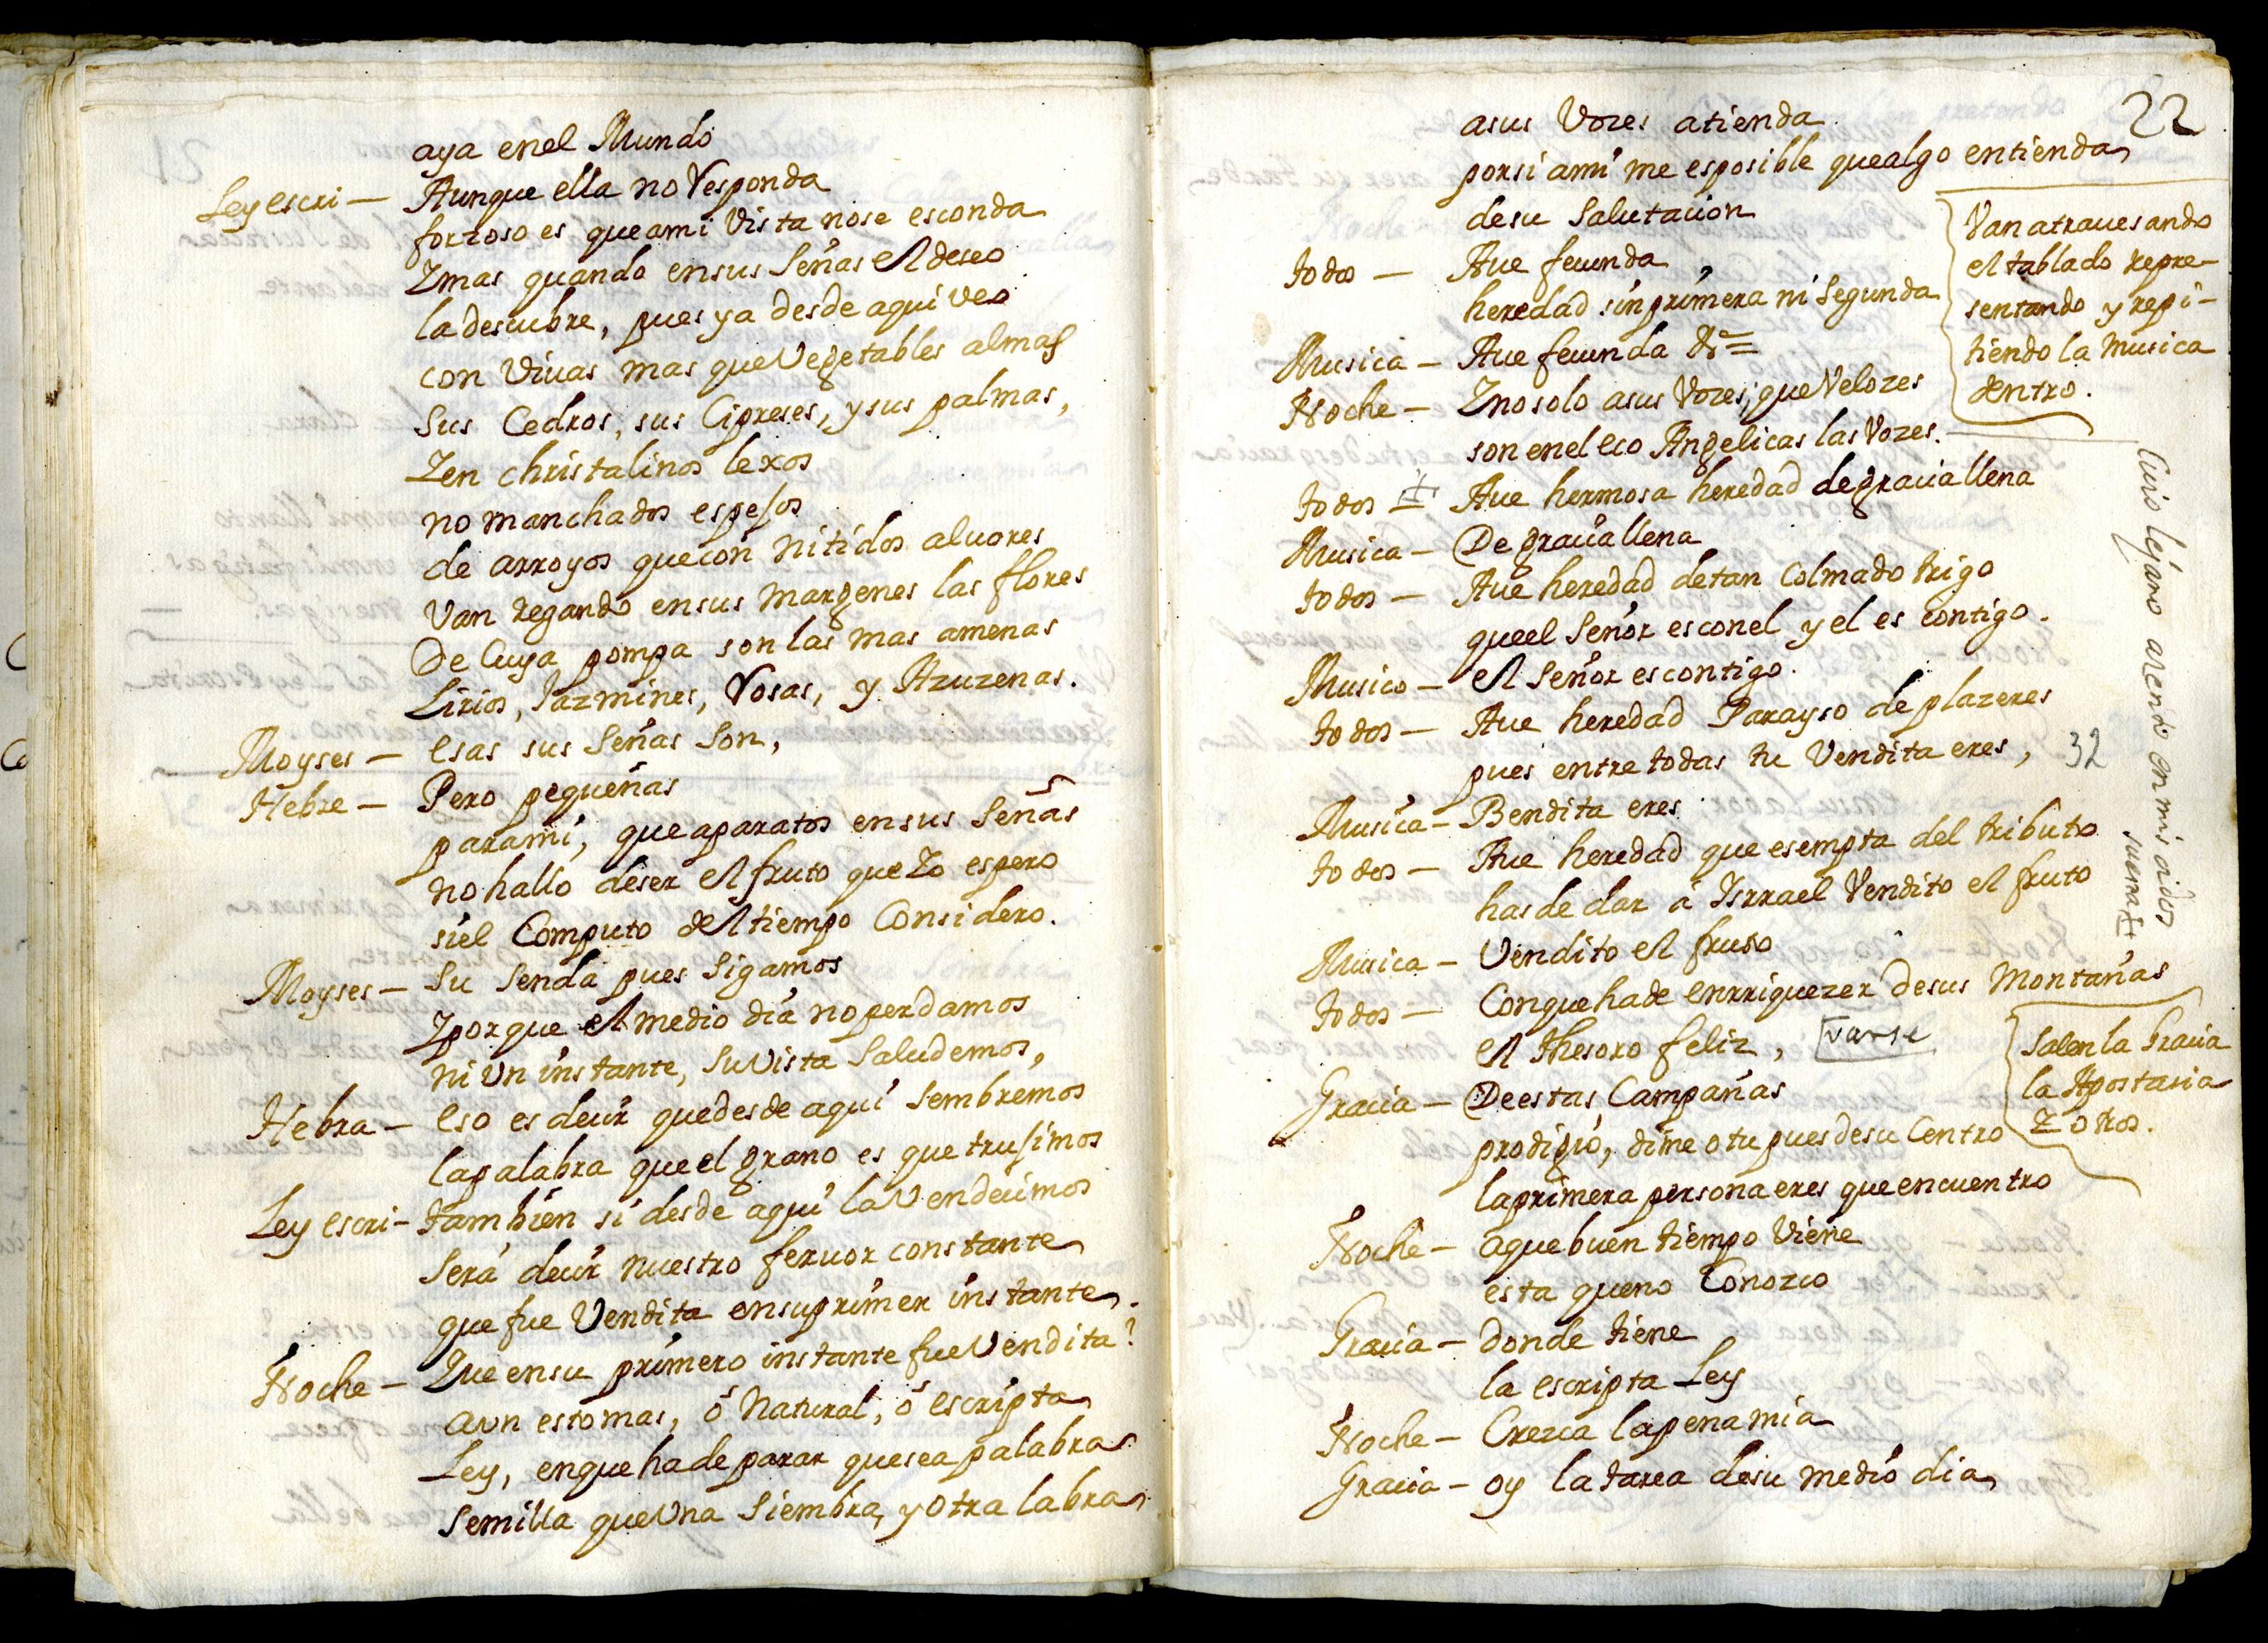 aya enel Mundo
Ley escri — Aunque ella no Responda
forzoso es que ami Vista nose esconda
Y mas quando ensus Señas el deseo
la descubre, pues ya desde aqui veo
con Viuas mas que Vegetables almas
Sus Cedros, sus Cipreses, y sus palmas,
Y en christalinos lexos
no manchados espejos
de arroyos que con nitidos aluores
Van regando, ensus margenes las flores
De Cuya pompa son las mas amenas
Lirios, Jazmines, Rosas, y Azuzenas.
Moyses — esas sus Señas son,
Hebre — Pero pequeñas
parami, que aparatos ensus Señas
no hallo deser el fruto que Yo espero
si el Computo del tiempo Considero.
Moyses — Su Senda pues Sigamos
Y porque el medio dia no perdamos
ni Vn instante, su Vista Saludemos,
Hebra — eso es decir que desde aqui Sembremos
la palabra que el grano es que trusimos
Ley escri — tambien si desde aqui la Vendecimos
Será decir nuestro feruor constante
que fue Vendita ensu primer instante.
Noche — Que ensu primero instante fue Vendita?
aun esto mas, ó Natural, ó escripta
Ley, enque hade parar que sea palabra
Semilla que Vna Siembra, y otra labra
22
asus Vozes atienda
por si ami me es posible que algo entienda
desu Salutacion
Van atrauesando
el tablado repre-
sentando y repi-
tiendo la musica
dentro.
todos — Aue fecunda
heredad sin primera ni Segunda
Musica — Aue fecunda &c=
Noche — Y no solo asus Vozes, que Velozes
son enel eco Angelicas las Vozes.
Cuio lejano acento en mis oidos
suena
todos — Aue hermosa heredad de gracia llena
Musica — De gracia llena
todos — Aue heredad de tan Colmado trigo
que el Señor es con el y el es contigo.
Musico — el Señor es contigo.
todos — Aue heredad Parayso de plazeres
pues entre todas tu Vendita eres,
32
Musica — Bendita eres
todos — Aue heredad que esempta del tributo
has de dar á Isrrael Vendito el fruto
Musica — Vendito el fruto
todos — Conque hade enrriquezer desus Montañas
el thesoro feliz, vanse
Salen la Gracia
la Apostasia
Y otros.
Gracia — De estas Campañas
prodigio, dime o tu pues desu Centro
la primera persona eres que encuentro
Noche — a que buen tiempo Viene
esta que no Conozco
Gracia — donde tiene
la escripta Ley
Noche — Crezca la pena mia
Gracia — oy la tarea desu medio dia